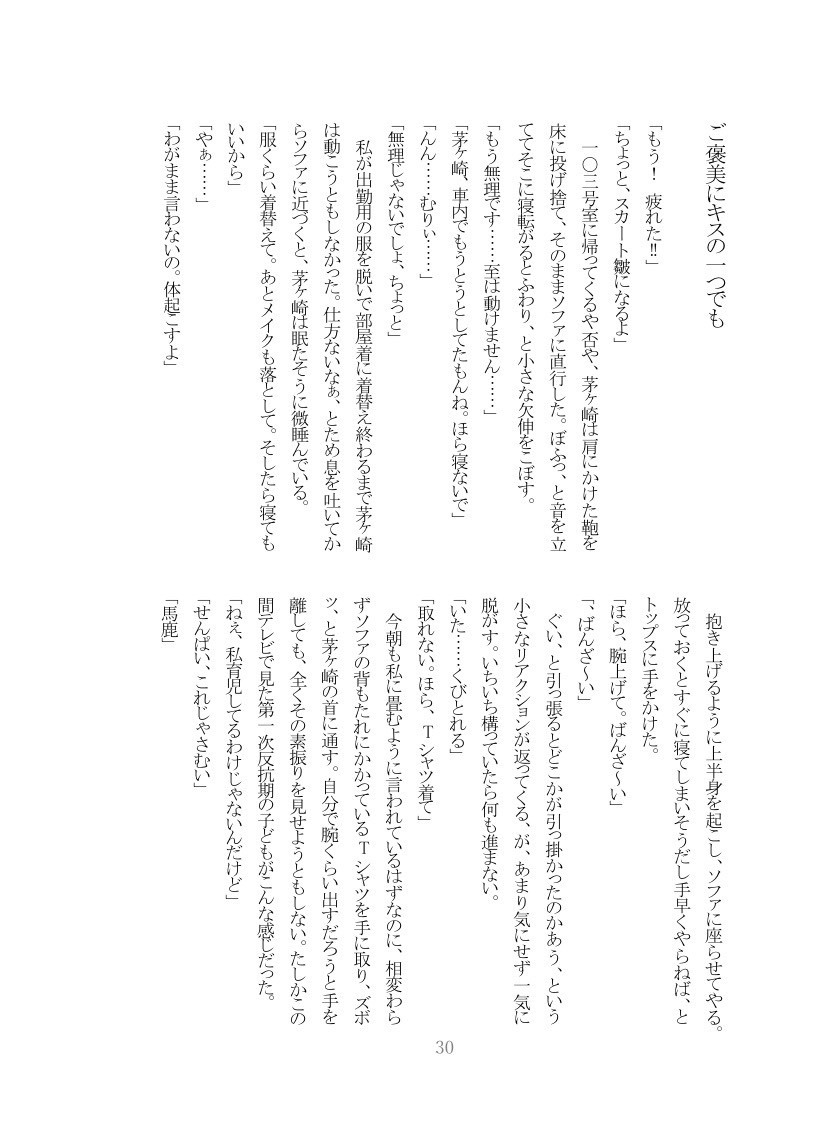 ご褒美にキスの一つでも
「もう！　疲れた‼」
「ちょっと、スカート皺になるよ」
　一〇三号室に帰ってくるや否や、茅ヶ崎は肩にかけた鞄を
床に投げ捨て、そのままソファに直行した。ぼふっ、と音を立
ててそこに寝転がるとふわり、と小さな欠伸をこぼす。
「もう無理です……至は動けません……」
「茅ヶ崎、車内でもうとうとしてたもんね。ほら寝ないで」
「んん……むりぃ……」
「無理じゃないでしょ、ちょっと」
　私が出勤用の服を脱いで部屋着に着替え終わるまで茅ヶ崎
は動こうともしなかった。仕方ないなぁ、とため息を吐いてか
らソファに近づくと、茅ヶ崎は眠たそうに微睡んでいる。
「服くらい着替えて。あとメイクも落として。そしたら寝ても
いいから」
「やぁ……」
「わがまま言わないの。体起こすよ」
　抱き上げるように上半身を起こし、ソファに座らせてやる。
放っておくとすぐに寝てしまいそうだし手早くやらねば、と
トップスに手をかけた。
「ほら、腕上げて。ばんざ〜い」
「、ばんざ〜い」
　ぐい、と引っ張るとどこかが引っ掛かったのかあう、という
小さなリアクションが返ってくる、が、あまり気にせず一気に
脱がす。いちいち構っていたら何も進まない。
「いた……くびとれる」
「取れない。ほら、Tシャツ着て」
　今朝も私に畳むように言われているはずなのに、相変わら
ずソファの背もたれにかかっているTシャツを手に取り、ズボ
ッ、と茅ヶ崎の首に通す。自分で腕くらい出すだろうと手を
離しても、全くその素振りを見せようともしない。たしかこの
間テレビで見た第一次反抗期の子どもがこんな感じだった。
「ねぇ、私育児してるわけじゃないんだけど」
「せんぱい、これじゃさむい」
「馬鹿」
30